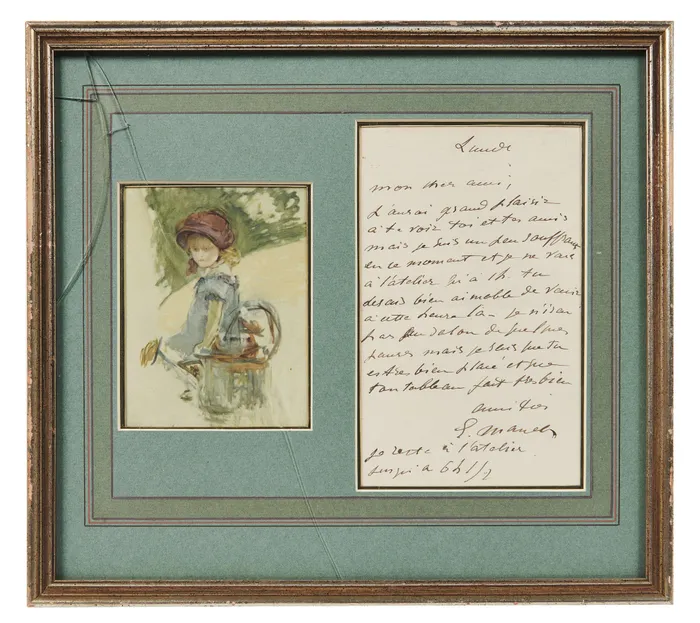 Lundi
mon cher ami,
J'aurai grand plaisir
à te voir toi et tes amis
mais je suis un peu souffrant
en ce moment et je ne vais
à l'atelier qu'à 4h tu
serais bien aimable de venir
à cette heure la. je n'irai
pas au salon de quelques
jours mais je sais que tu
es très bien placé et que
ton tableau fait très bien
amitiés
E. Manet
je reste à l'atelier
jusqu'à 6h 1/2